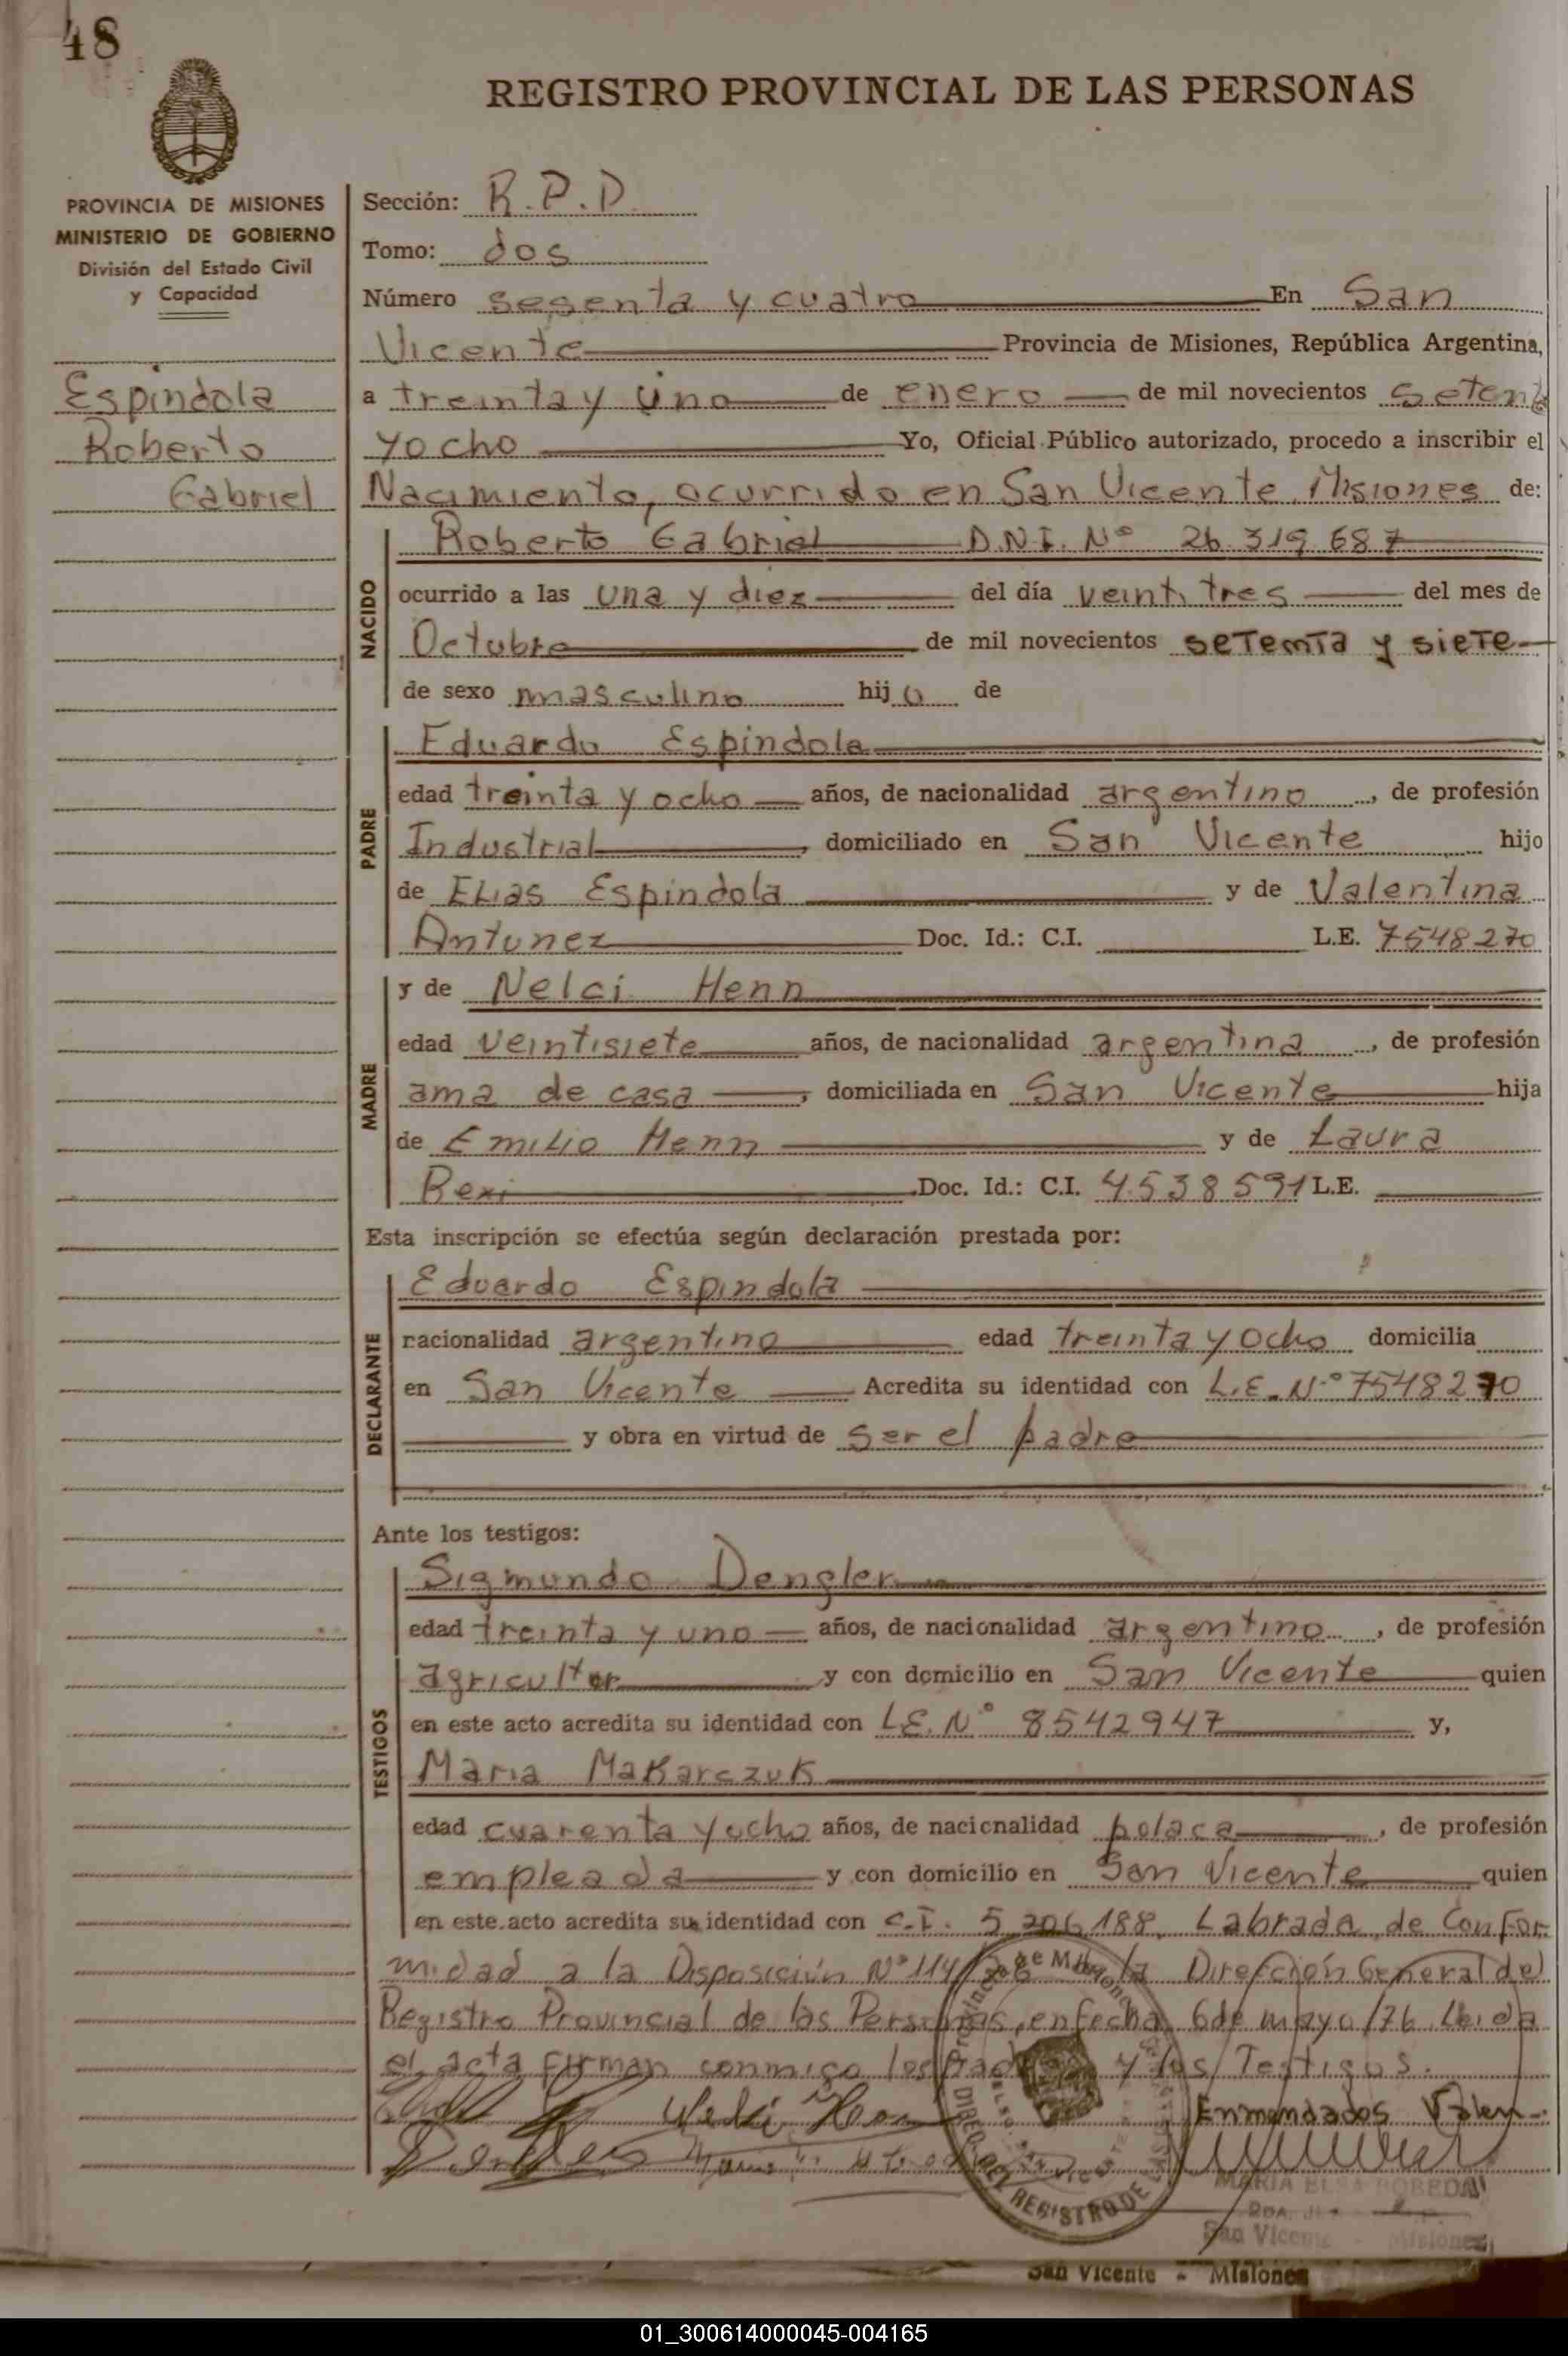 48
REGISTRO PROVINCIAL DE LAS PERSONAS
PROVINCIA DE MISIONES
MINISTERIO DE GOBIERNO
División del Estado Civil
y Capacidad
Espindola
Roberto
Gabriel
Sección: R.P.D.
Tomo: dos
Número sesenta y cuatro En San
Vicente Provincia de Misiones, República Argentina,
a treinta y uno de enero de mil novecientos setenta
y ocho Yo, Oficial Público autorizado, procedo a inscribir el
Nacimiento, ocurrido en San Vicente Misiones de:
NACIDO
Roberto Gabriel D.N.I. Nº 26.319.687
ocurrido a las una y diez del día veintitres del mes de
Octubre de mil novecientos setenta y siete
de sexo masculino hijo de
PADRE
Eduardo Espindola
edad treinta y ocho años, de nacionalidad argentino, de profesión
Industrial, domiciliado en San Vicente hijo
de Elias Espindola y de Valentina
Antunez Doc. Id.: C.I. L.E. 7548270
MADRE
y de Nelci Henn
edad veintisiete años, de nacionalidad argentina, de profesión
ama de casa, domiciliada en San Vicente hija
de Emilio Henn y de Laura
Rexi Doc. Id.: C.I. 4.538.591 L.E.
Esta inscripción se efectúa según declaración prestada por:
DECLARANTE
Eduardo Espindola
nacionalidad argentino edad treinta y ocho domicilia
en San Vicente Acredita su identidad con L.E. Nº 7548270
y obra en virtud de ser el padre
Ante los testigos:
TESTIGOS
Sigmundo Dengler
edad treinta y uno años, de nacionalidad argentino, de profesión
agricultor y con domicilio en San Vicente quien
en este acto acredita su identidad con L.E. Nº 8542947 y,
Maria Makarczuk
edad cuarenta y ocho años, de nacionalidad polaca, de profesión
empleada y con domicilio en San Vicente quien
en este acto acredita su identidad con C.I. 5.206.188. Labrada de Confor
midad a la Disposición Nº 114/76 de la Dirección General del
Registro Provincial de las Personas, en fecha 6 de mayo/76. Leida
el acta firman conmigo los padres y los Testigos.
Nelci Henn Enmendados Valen
Dengler
MARIA ELSA
San Vicente - Misiones
San Vicente - Misiones
01_300614000045-004165